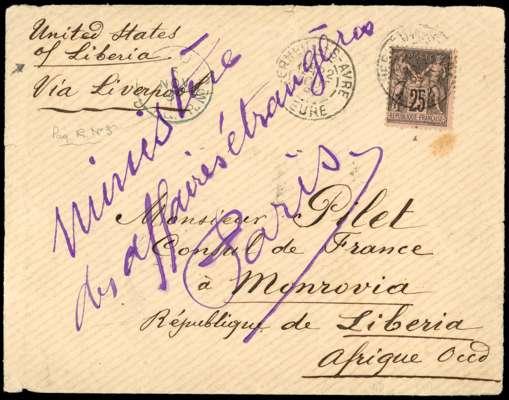 United States
of Liberia
Via Liverpool
Paq
EURE
25
REPUBLIQUE FRANCAISE
ministère
des affaires étrangères
Paris
Monsieur Pilet
Consul de France
à Monrovia
République de Liberia
Afrique Oucd